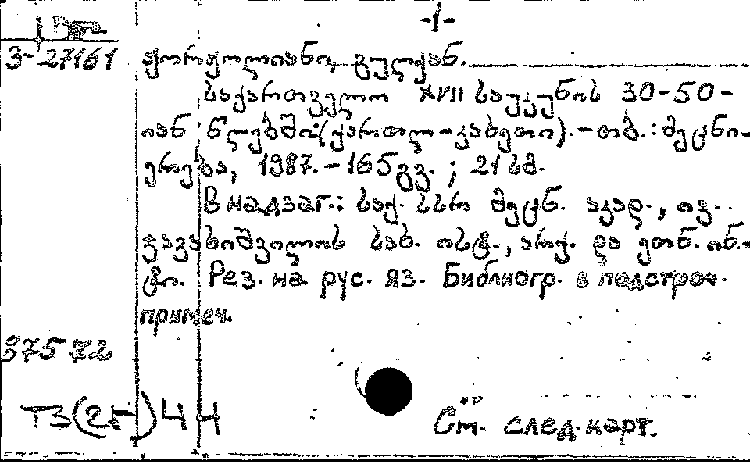 -1-
З-27161 ჟორჟოლიანი, გულჟან.
საქართველო XVII საუკუნის 30-50-
იან წლებში: (ქართლ-კახეთი). - თბ.: მეცნი-
ერება, 1987. - 165 გვ. ; 21 სმ.
В надзаг.: საქ. სსრ მეცნ. აკად., ივ.
ჯავახიშვილის სახ. ისტ., არქ. და ეთნ. ინ-
ტი. Рез. на рус. яз. Библиогр. в подстроч.
примеч.
87572
Т3(2Г)4 Ч
См. след. карт.